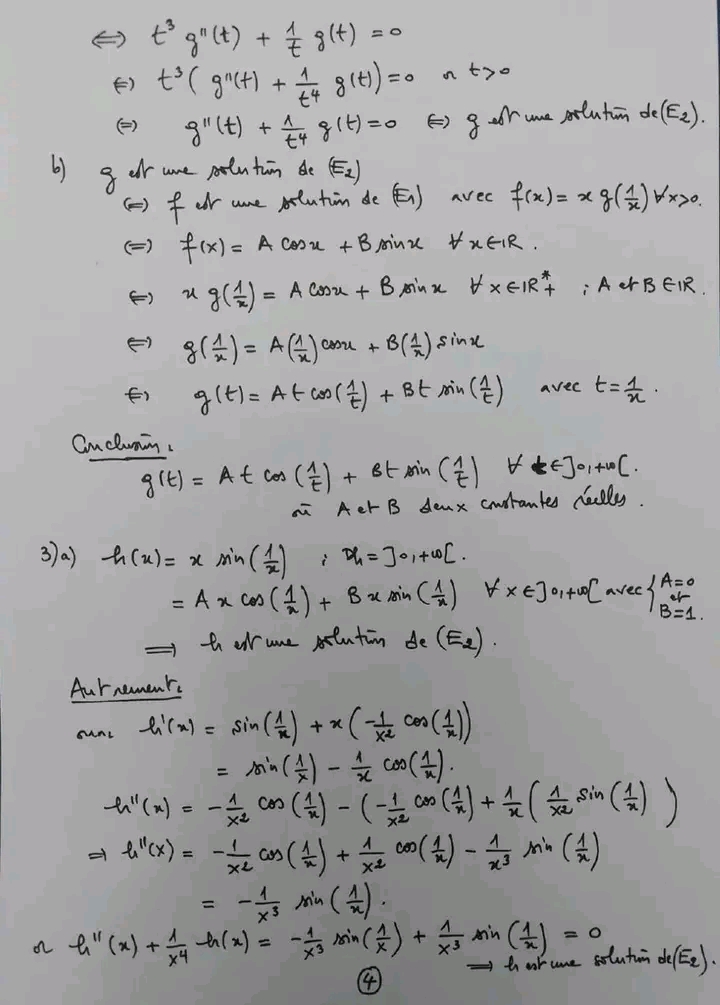 ⇔ t³ g''(t) + 1/t g(t) = 0
⇔ t³( g''(t) + 1/t⁴ g(t)) = 0 or t>0
⇔ g''(t) + 1/t⁴ g(t) = 0 ⇔ g est une solution de (E₂).
b) g est une solution de (E₂)
⇔ f est une solution de (E₁) avec f(x) = x g(1/x) ∀x>0.
⇔ f(x) = A cosx + B sinx ∀x∈ℝ.
⇔ x g(1/x) = A cosx + B sinx ∀x∈ℝ*₊ ; A et B ∈ℝ.
⇔ g(1/x) = A(1/x) cosx + B(1/x) sinx
⇔ g(t) = At cos(1/t) + Bt sin(1/t) avec t = 1/x.
Conclusion:
g(t) = At cos(1/t) + Bt sin(1/t) ∀ t∈]0,+∞[.
où A et B deux constantes réelles.
3)a) h(x) = x sin(1/x) ; Dh = ]0,+∞[.
= A x cos(1/x) + B x sin(1/x) ∀x∈]0,+∞[ avec { A=0 et B=1.
⟹ h est une solution de (E₂).
Autrement:
h'(x) = sin(1/x) + x(-1/x² cos(1/x))
= sin(1/x) - 1/x cos(1/x).
h''(x) = -1/x² cos(1/x) - (-1/x² cos(1/x) + 1/x( 1/x² sin(1/x) )
⇒ h''(x) = -1/x² cos(1/x) + 1/x² cos(1/x) - 1/x³ sin(1/x)
= -1/x³ sin(1/x).
or h''(x) + 1/x⁴ h(x) = -1/x³ sin(1/x) + 1/x³ sin(1/x) = 0
⟹ h est une solution de (E₂).
4